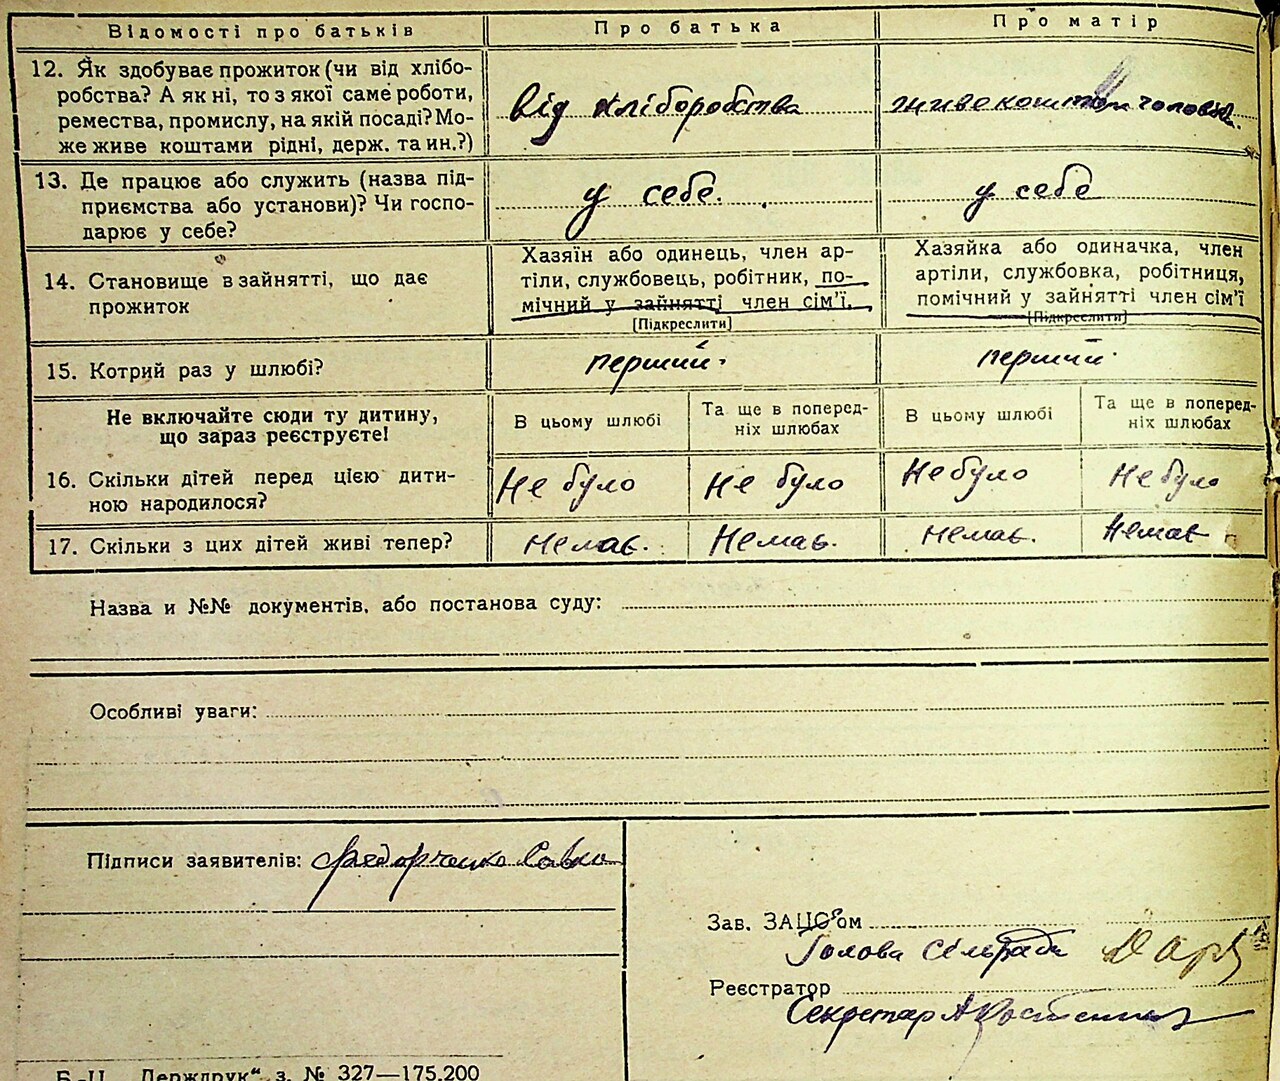 Відомості про батьків Про батька Про матір
12. Як здобуває прожиток (чи від хлібо-
робства? А як ні, то з якої саме роботи,
ремества, промислу, на якій посаді? Мо-
же живе коштами рідні, держ. та ин.?)
від хліборобства
живе коштом чоловіка.
13. Де працює або служить (назва під-
приємства або установи)? Чи госпо-
дарює у себе?
у себе.
у себе
14. Становище в зайнятті, що дає
прожиток
Хазяїн або одинець, член ар-
тіли, службовець, робітник, по-
мічний у зайнятті член сім'ї.
[Підкреслити]
Хазяйка або одиначка, член
артіли, службовка, робітниця,
помічний у зайнятті член сім'ї
[Підкреслити]
15. Котрий раз у шлюбі?
перший
перший
Не включайте сюди ту дитину,
що зараз реєструєте!
В цьому шлюбі
Та ще в поперед-
ніх шлюбах
В цьому шлюбі
Та ще в поперед-
ніх шлюбах
16. Скільки дітей перед цією дити-
ною народилося?
Не було Не було Не було Не було
17. Скільки з цих дітей живі тепер?
Немає. Немає. Немає. Немає
Назва и №№ документів, або постанова суду:
Особливі уваги:
Підписи заявителів: Федорченко Савка
Зав. ЗАЦС'ом
Голова сільради
Реєстратор
Секретар
Б.-Ц. „Держдрук“ з. № 327—175.200